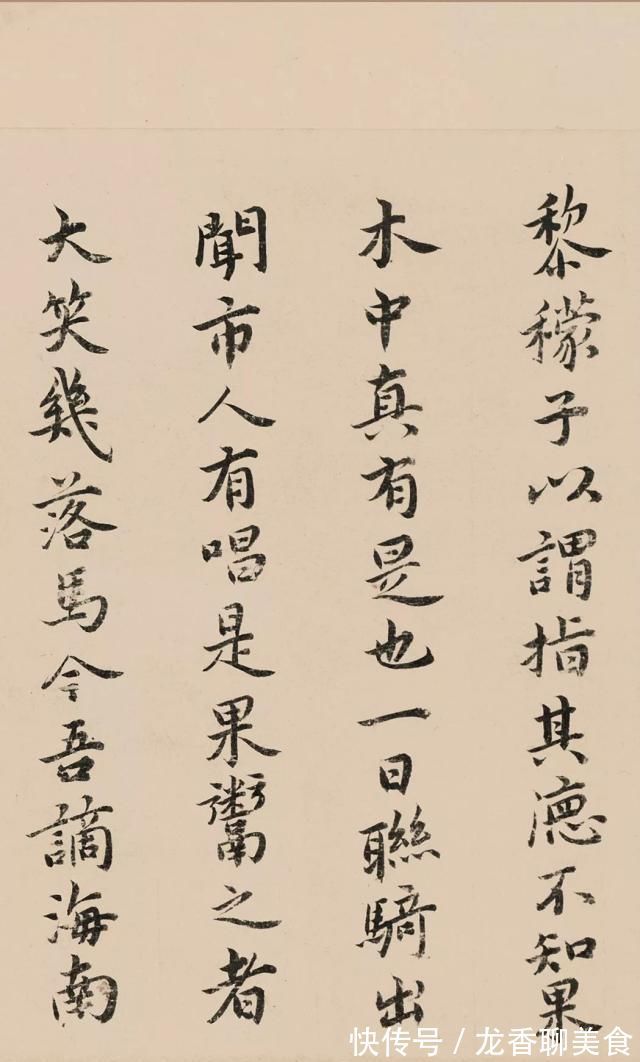 黎檬子以謂指其德不知果
木中真有是也一日聯騎出
聞市人有唱是果鬻之者
大笑幾落馬今吾謫海南
快传号 / 龙香聊美食